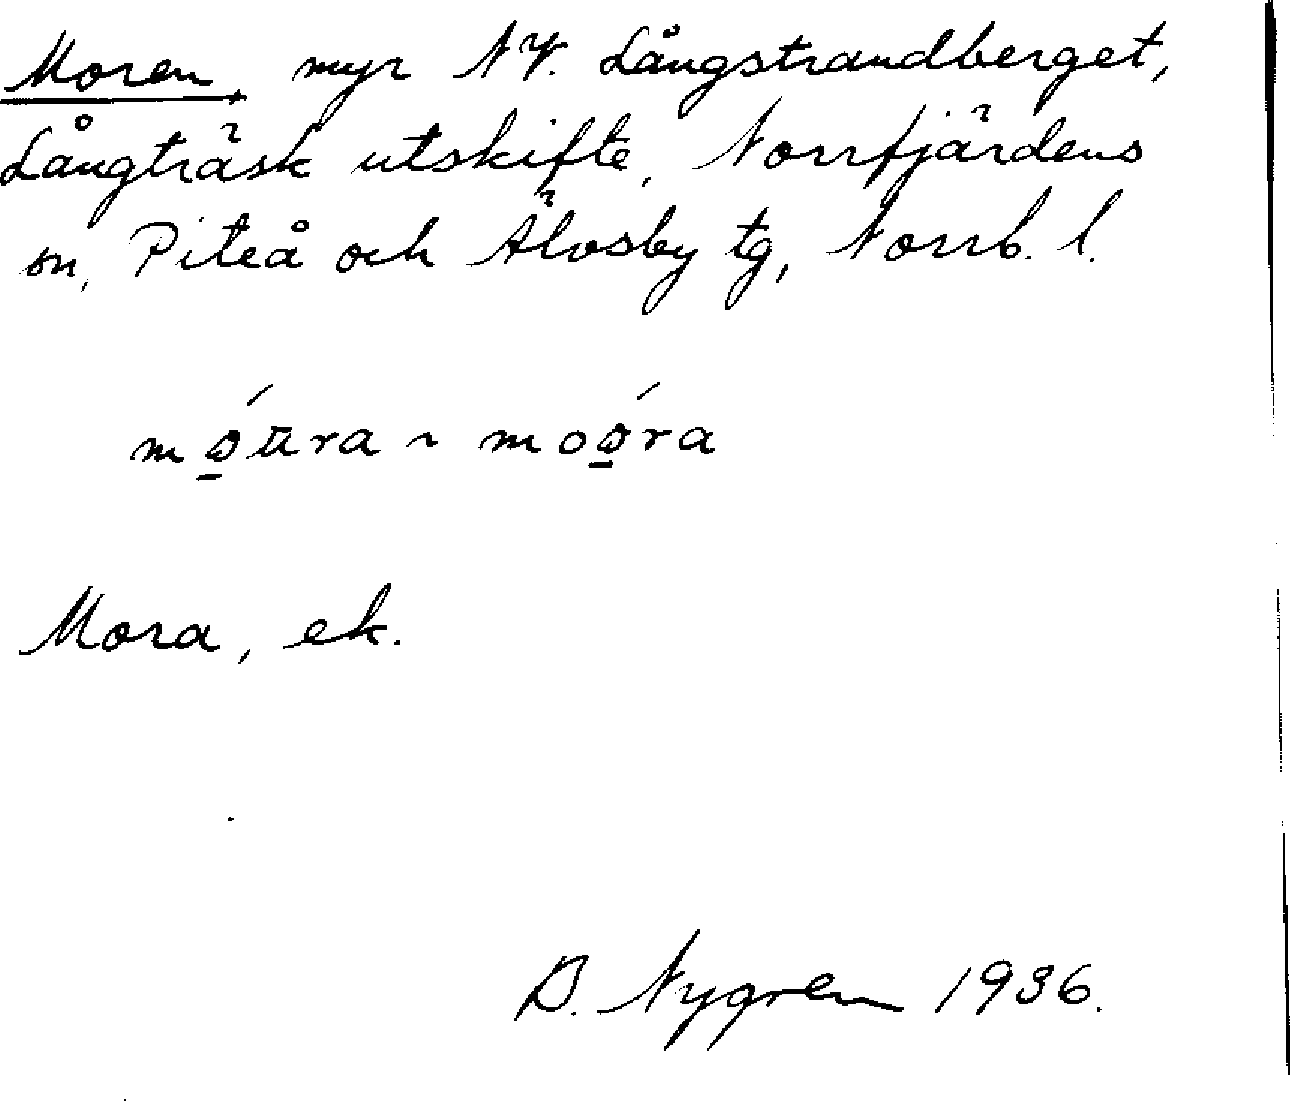 Moren, myr NV. Långstrandberget,
Långträsk utskifte, Norrfjärdens
sn, Piteå och Älvsby tg, Norrb. l.
mǫ́ŭra ~ moǫ́ra
Mora, ek.
B. Nygren 1936.